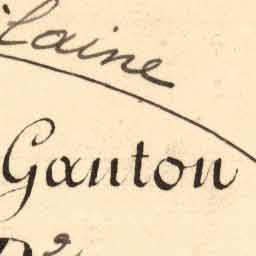 laine
Ganton